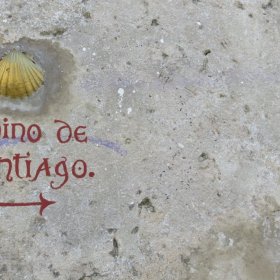 ino de
ntiago.